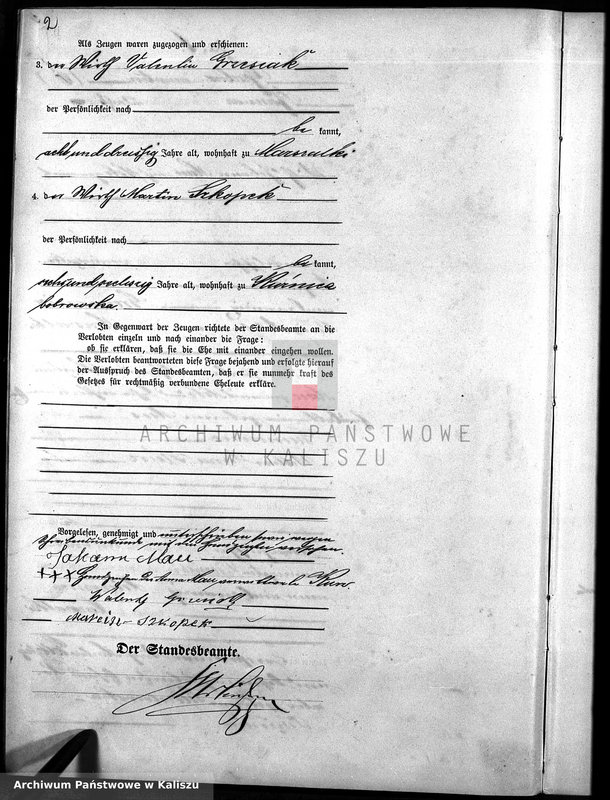 2
Als Zeugen waren zugezogen und erschienen:
3. der Wirth Valentin Grzesiak
der Persönlichkeit nach
be kannt,
acht und dreißig Jahre alt, wohnhaft zu Marszalki
4. der Wirth Martin Szkopek
der Persönlichkeit nach
be kannt,
Jahre alt, wohnhaft zu Kuźnica
bobrowska.
In Gegenwart der Zeugen richtete der Standesbeamte an die
Verlobten einzeln und nach einander die Frage:
ob sie erklären, daß sie die Ehe mit einander eingehen wollen.
Die Verlobten beantworteten diese Frage bejahend und erfolgte hierauf
der Ausspruch des Standesbeamten, daß er sie nunmehr kraft des
Gesetzes für rechtmäßig verbundene Eheleute erkläre.
ARCHIWUM PAŃSTWOWE
W KALISZU
Vorgelesen, genehmigt und unterschrieben wegen
Schreibensunkunde mit Handzeichen versehen.
Johann Mau
+++ Handzeichen der Anna Mau
Walenty
Szkopek
Der Standesbeamte.
Archiwum Państwowe w Kaliszu